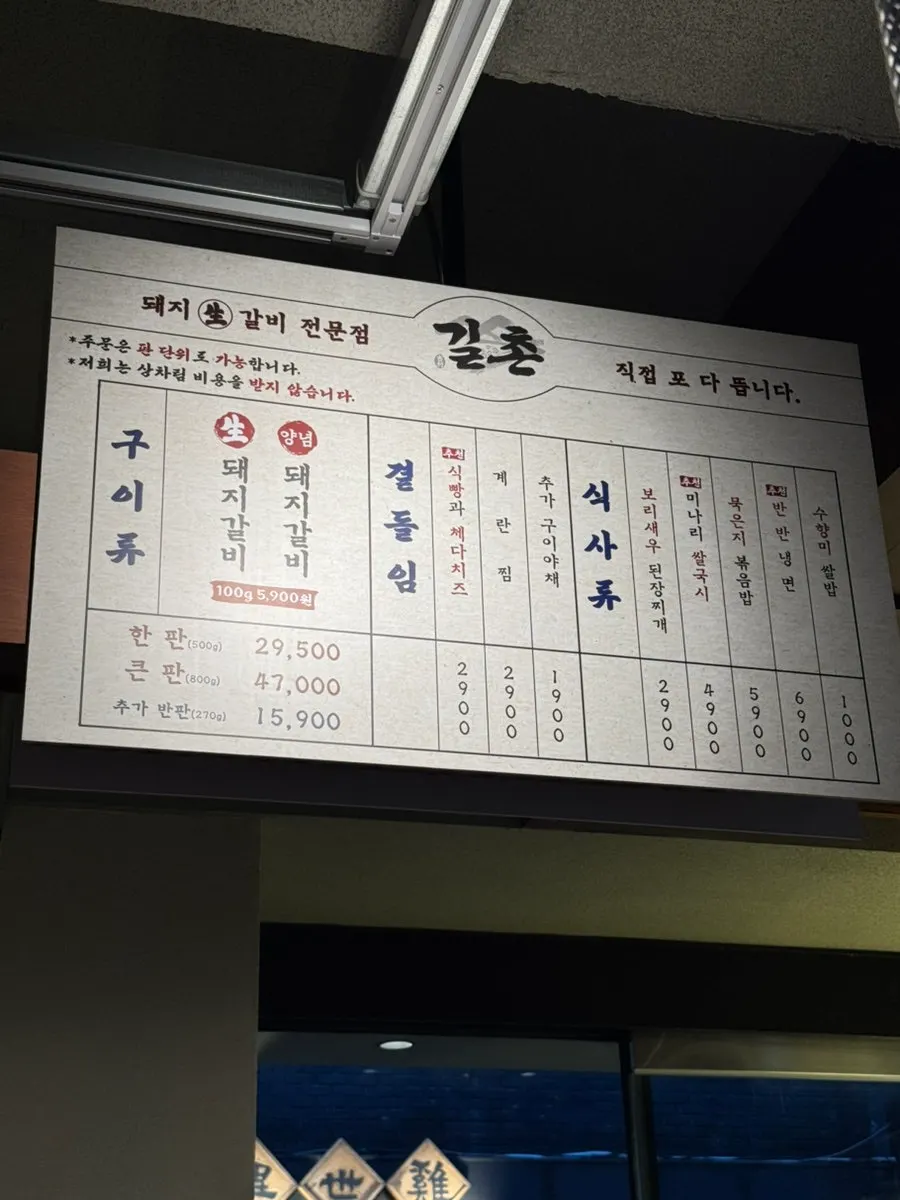 돼지 生 갈비 전문점
길촌
직접 포 다 뜹니다.
*주문은 판 단위로 가능합니다.
*저희는 상차림 비용을 받지 않습니다.
구이류
生 돼지갈비
양념 돼지갈비
100g 5,900원
한 판(500g) 29,500
큰 판(800g) 47,000
추가 반판(270g) 15,900
곁들임
추천 식빵과 체다치즈 2900
계란찜 2900
추가 구이야채 1900
식사류
보리새우 된장찌개 2900
추천 미나리 쌀국시 4900
묵은지 볶음밥 5900
추천 반반냉면 6900
수향미 쌀밥 1000
世 雞